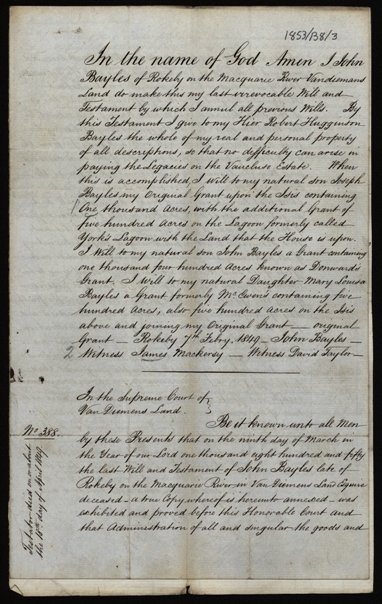 1853/138/3
In the name of God Amen I John
Bayles of Rokeby on the Macquarie River Vandeemans
Land do make this my last irrevocable Will and
Testament by which I annul all previous Wills. By
this Testament I give to my Hier Robert Hugginson
Bayles the whole of my real and personal property
of all descriptions, so that no difficulty can arise in
paying the Legacies on the Vaucluse Estate. When
this is accomplished, I will to my natural son Joseph
Bayles my Original Grant upon the Isis containing
One thousand Acres, with the additional Grant of
five hundred acres on the Lagoon formerly called
York's Lagoon with the Land that the House is upon.
I Will to my natural son John Bayles a Grant containing
one thousand four hundred Acres known as Donward's
Grant, I will to my natural Daughter Mary Louisa
Bayles a Grant formerly McEwens containing five
hundred Acres, also five hundred acres on the Isis
above and joining my Original Grant — original
Grant — Rokeby 7th Febry, 1849 — John Bayles —
Witness James Mackersey — Witness David Taylor —
In the Supreme Court of
Van Diemens Land.
Be it known unto all Men
by these Presents that on the ninth day of March in
the Year of our Lord one thousand eight hundred and fifty
the last Will and Testament of John Bayles late of
Rokeby on the Macquarie River in Van Diemens Land Esquire
deceased a true Copy whereof is hereunto annexed was
exhibited and proved before this Honorable Court and
that Administration of all and singular the goods and
No. 388.
Testator died on or about
the 18th day of April 1849.